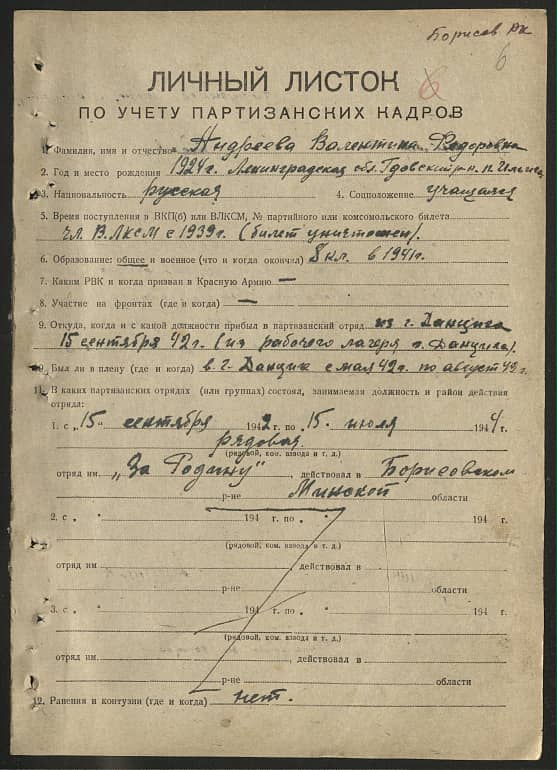 Борисов РК
6
6
ЛИЧНЫЙ ЛИСТОК
ПО УЧЕТУ ПАРТИЗАНСКИХ КАДРОВ
1. Фамилия, имя и отчество Андреева Валентина Федоровна
2. Год и место рождения 1924г. Ленинградская обл. Гдовский р-н
3. Национальность русская 4. Соцположение учащаяся
5. Время поступления в ВКП(б) или ВЛКСМ, № партийного или комсомольского билета
чл. ВЛКСМ с 1939г. (билет уничтожен).
6. Образование: общее и военное (что и когда окончил) 8 кл. в 1941г.
7. Каким РВК и когда призван в Красную Армию —
8. Участие на фронтах (где и когда) —
9. Откуда, когда и с какой должности прибыл в партизанский отряд из г. Данцига
15 сентября 42г. (из рабочего лагеря г. Данцига).
10. Был ли в плену (где и когда) в г. Данциг с мая 42г. по август 42г.
11. В каких партизанских отрядах (или группах) состоял, занимаемая должность и район действия
отряда:
1. с "15" сентября 1942 г. по "15" июля 1944 г.
рядовая
(рядовой, ком. взвода и т. д.)
отряд им. "За Родину", действовал в Борисовском
р-не Минской области
2. с " " 194 г. по " " 194 г.
(рядовой, ком. взвода и т. д.)
отряд им. , действовал в
р-не области
3. с " " 194 г. по " " 194 г.
(рядовой, ком. взвода и т. д.)
отряд им. , действовал в
р-не области
12. Ранения и контузии (где и когда) нет.